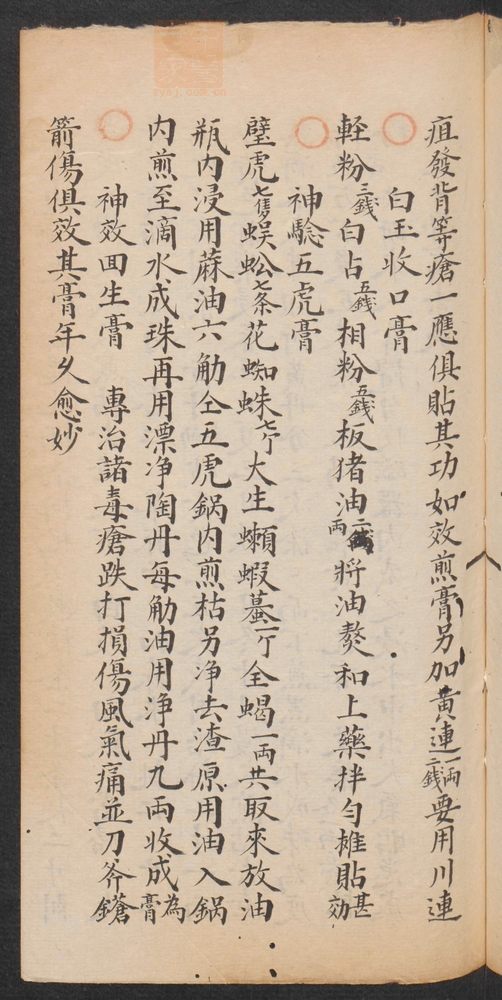 疽發背等瘡一應俱貼其功如效煎膏另加黃連一兩二錢要用川連
白玉收口膏
輕粉三錢白占五錢相粉五錢板猪油二兩將油熬和上藥拌勻攤貼甚効
神騐五虎膏
壁虎七隻蜈蚣七条花蜘蛛七个大生癩蝦蟇一个全蝎一兩共取來放油
瓶内浸用蔴油六觔仝五虎鍋内煎枯另净去渣原用油入鍋
内煎至滴水成珠再用漂净陶丹每觔油用净丹九兩收成為膏
神效回生膏 專治諸毒瘡跌打損傷風氣痛並刀斧鎗
箭傷俱效其膏年久愈妙